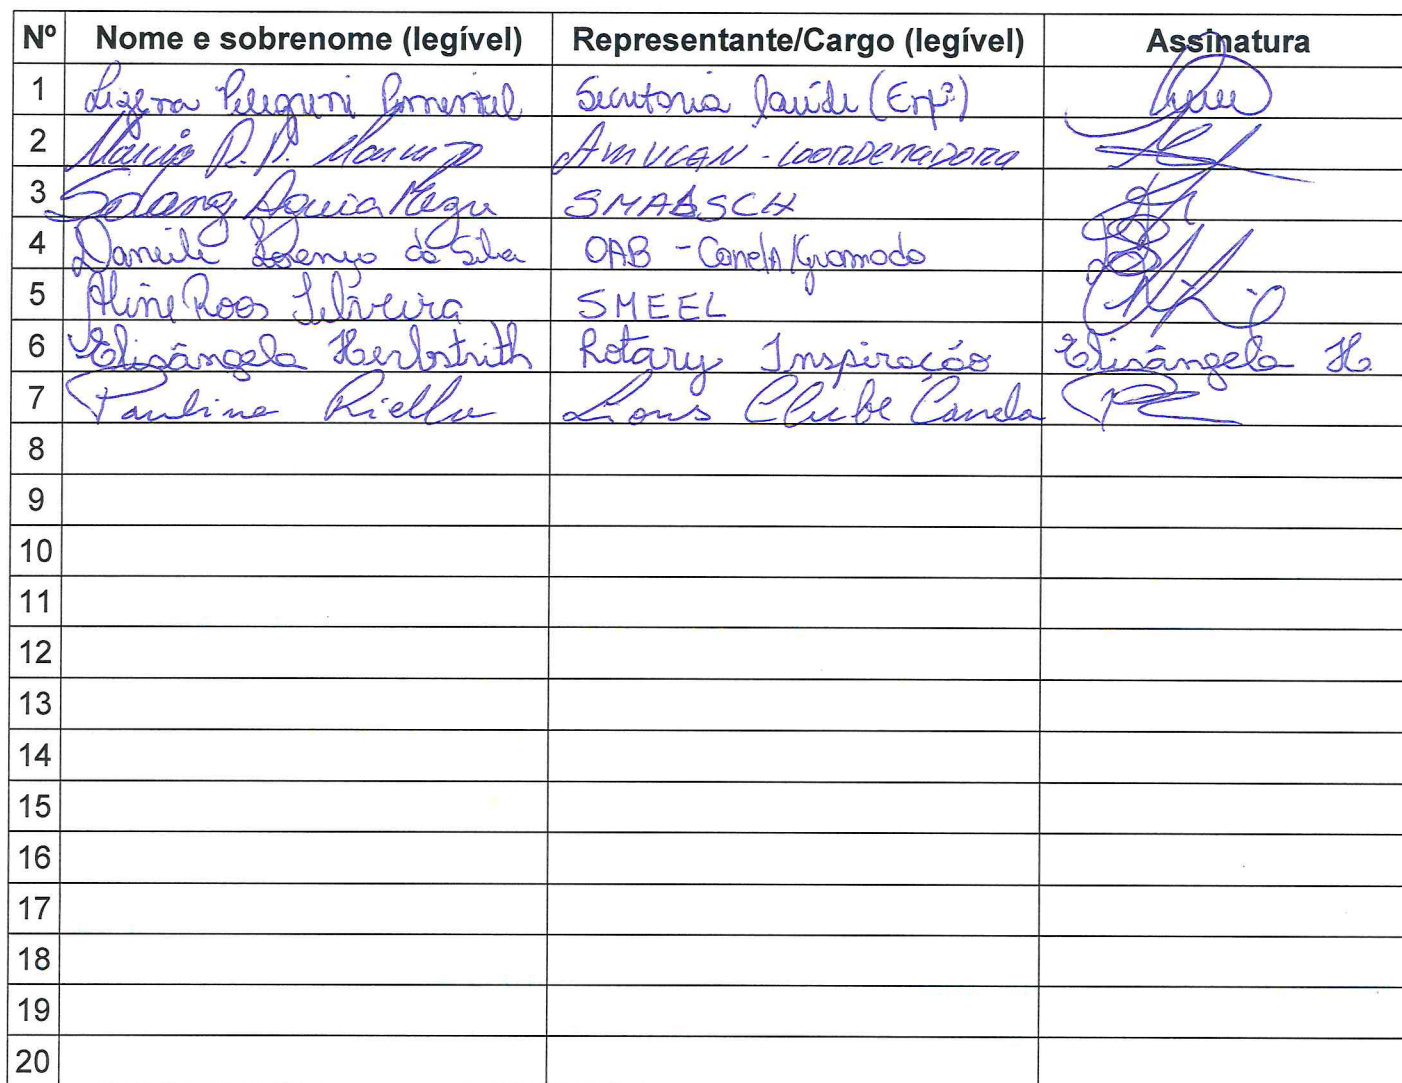 Nº Nome e sobrenome (legível) Representante/Cargo (legível) Assinatura
1 Pimentel Secretaria Saúde (Enfª)
2 D. P. AMVCAN - COORDENADORA
3 SMADSCH
4 Daniele Lorenço da Silva OAB - Canela/Gramado
5 Aline Roos Silveira SMEEL
6 Elisângela Herbstrith Rotary Inspiração Elisângela H.
7 Paulina Riella Lions Clube Canela
8
9
10
11
12
13
14
15
16
17
18
19
20